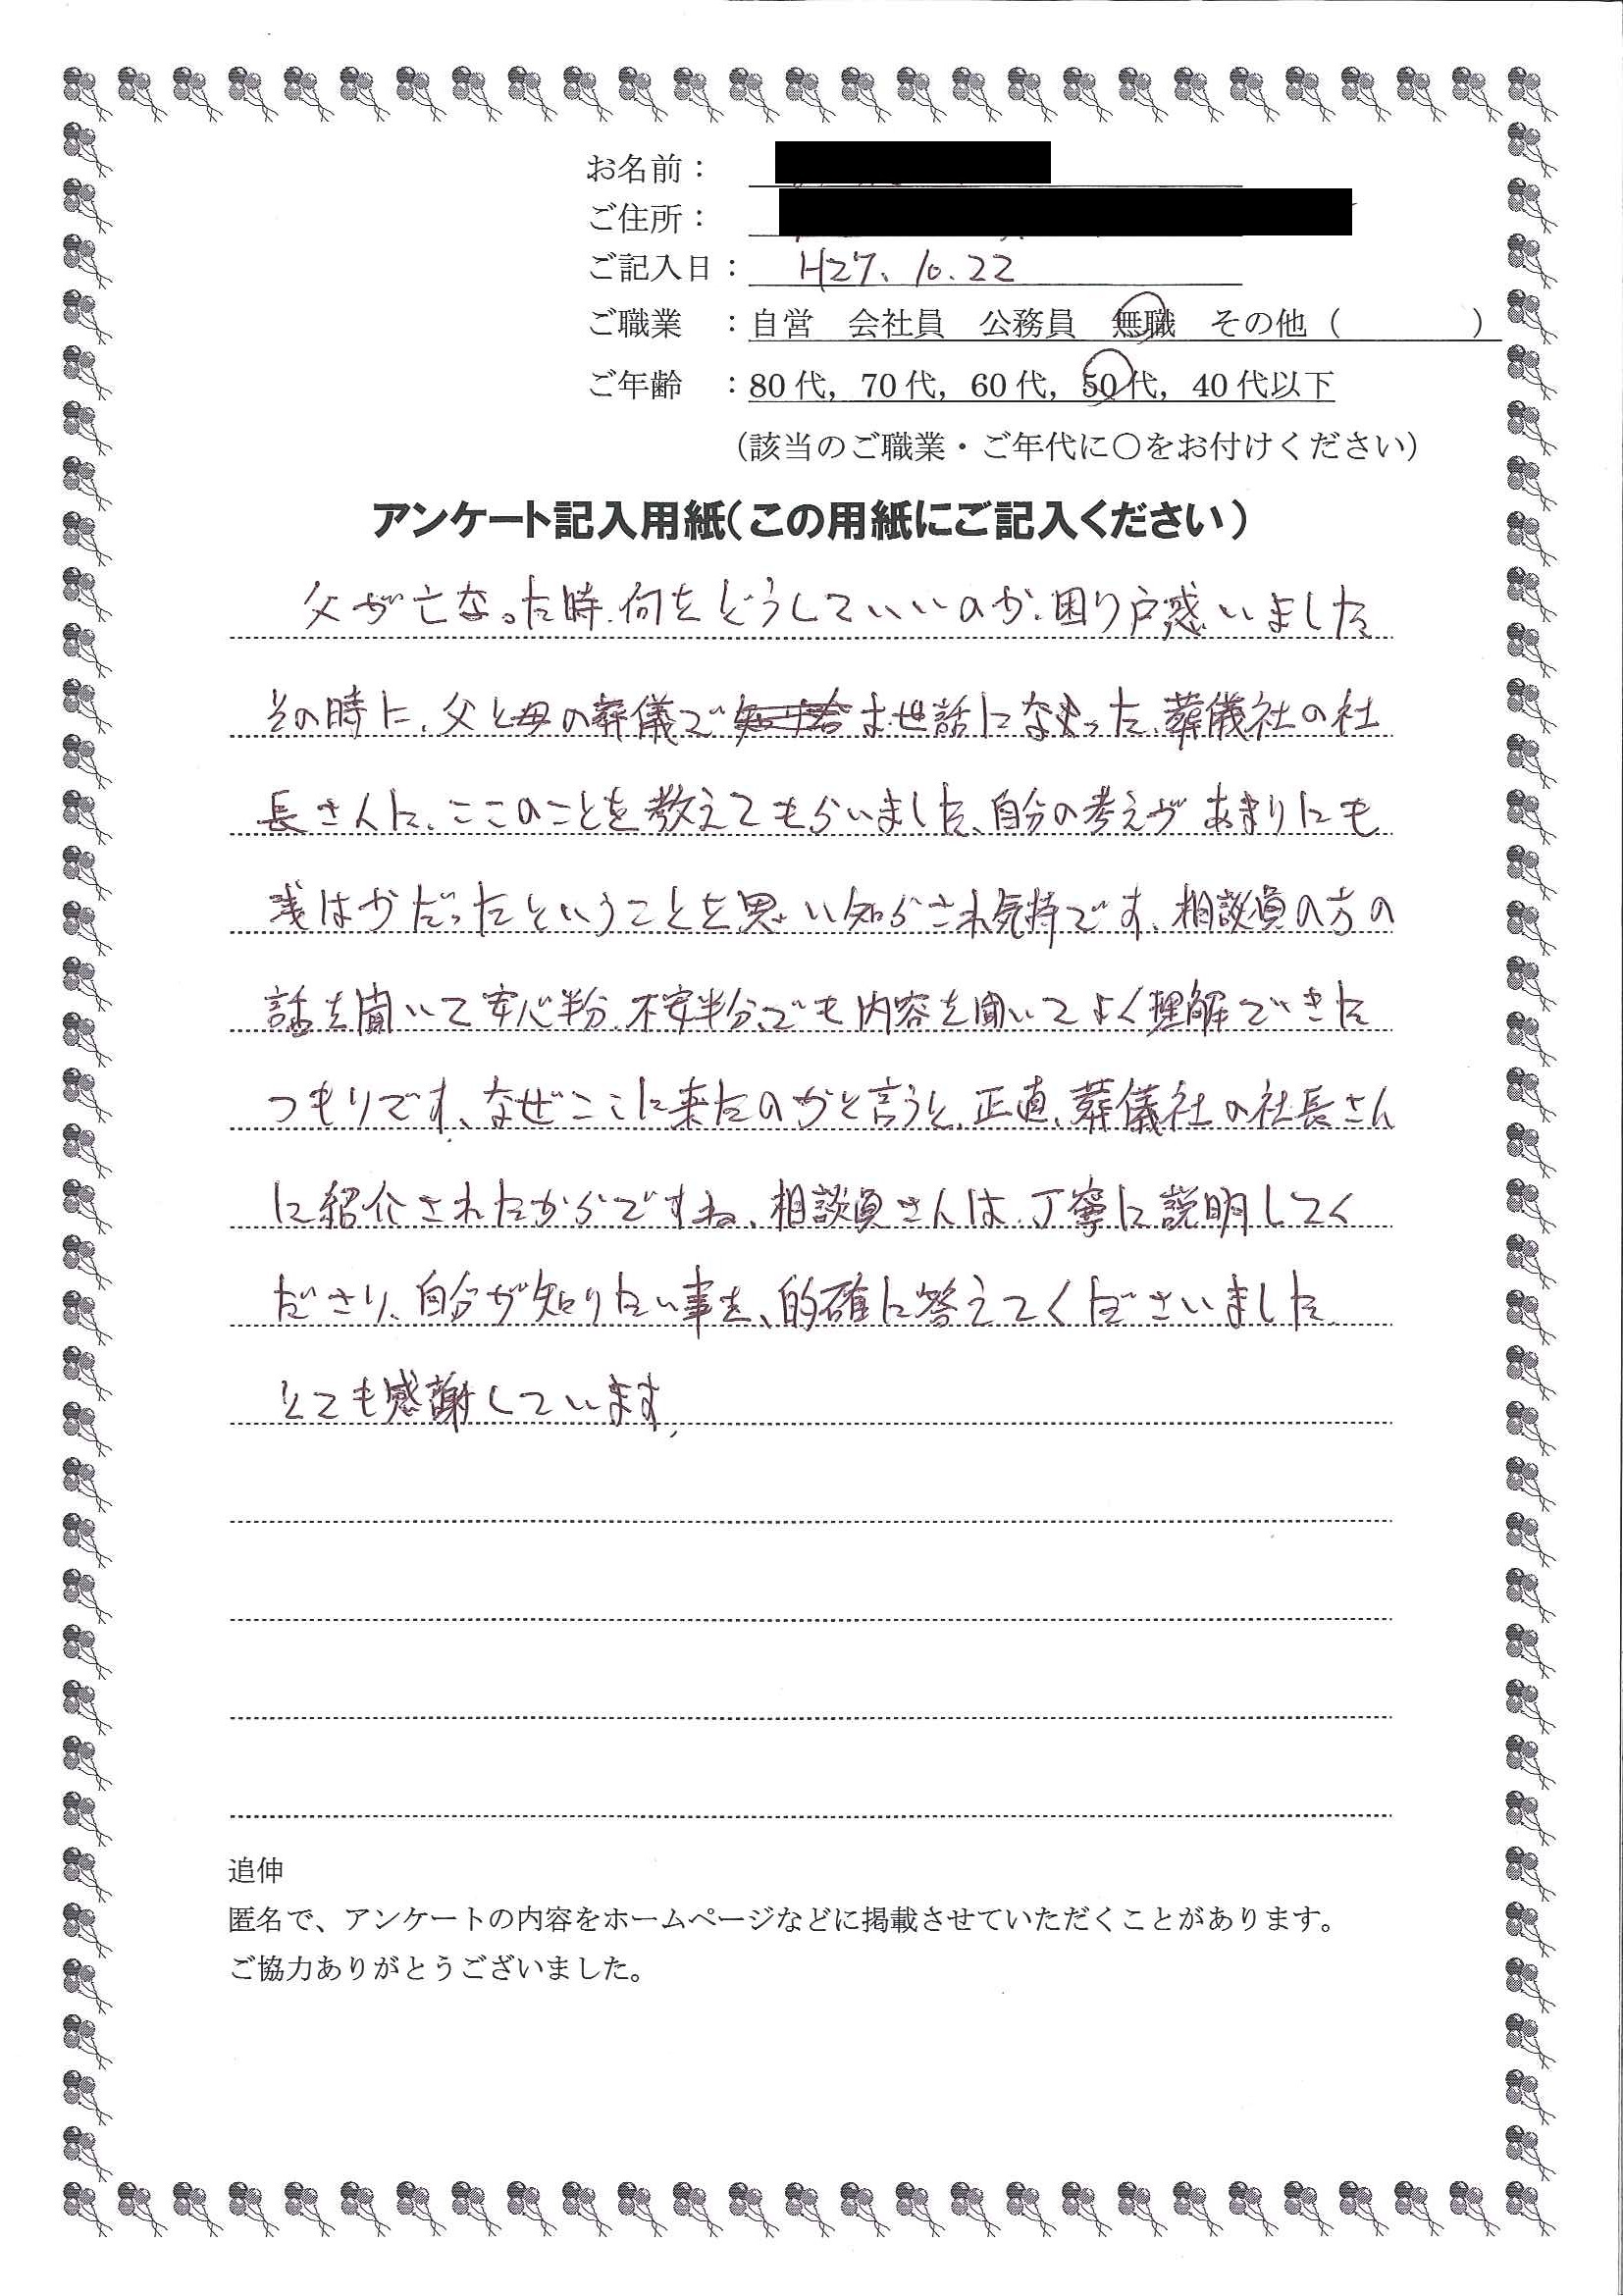 お名前：
ご住所：
ご記入日： H27、10.22
ご職業 ：自営 会社員 公務員 無職 その他（ ）
ご年齢 ：80代，70代，60代，50代，40代以下
（該当のご職業・ご年代に〇をお付けください）
アンケート記入用紙（この用紙にご記入ください）
父が亡なった時、何をどうしていいのか、困り戸惑いました
その時に、父と母の葬儀で お世話になった、葬儀社の社
長さんに、ここのことを教えてもらいました、自分の考えがあまりにも
浅はかだったということを思い知らされ気持です、相談員の方の
話を聞いて安心半分、不安半分、でも内容を聞いてよく理解できた
つもりです、なぜここに来たのかと言うと、正直、葬儀社の社長さん
に紹介されたからですね、相談員さんは、丁寧に説明してく
ださり、自分が知りたい事を、的確に答えてくださいました
とても感謝しています、
追伸
匿名で、アンケートの内容をホームページなどに掲載させていただくことがあります。
ご協力ありがとうございました。